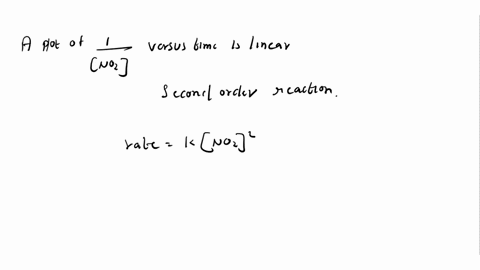 A plot of 1/[NO2] versus time is linear
Second order reaction.
rate = k[NO2]²